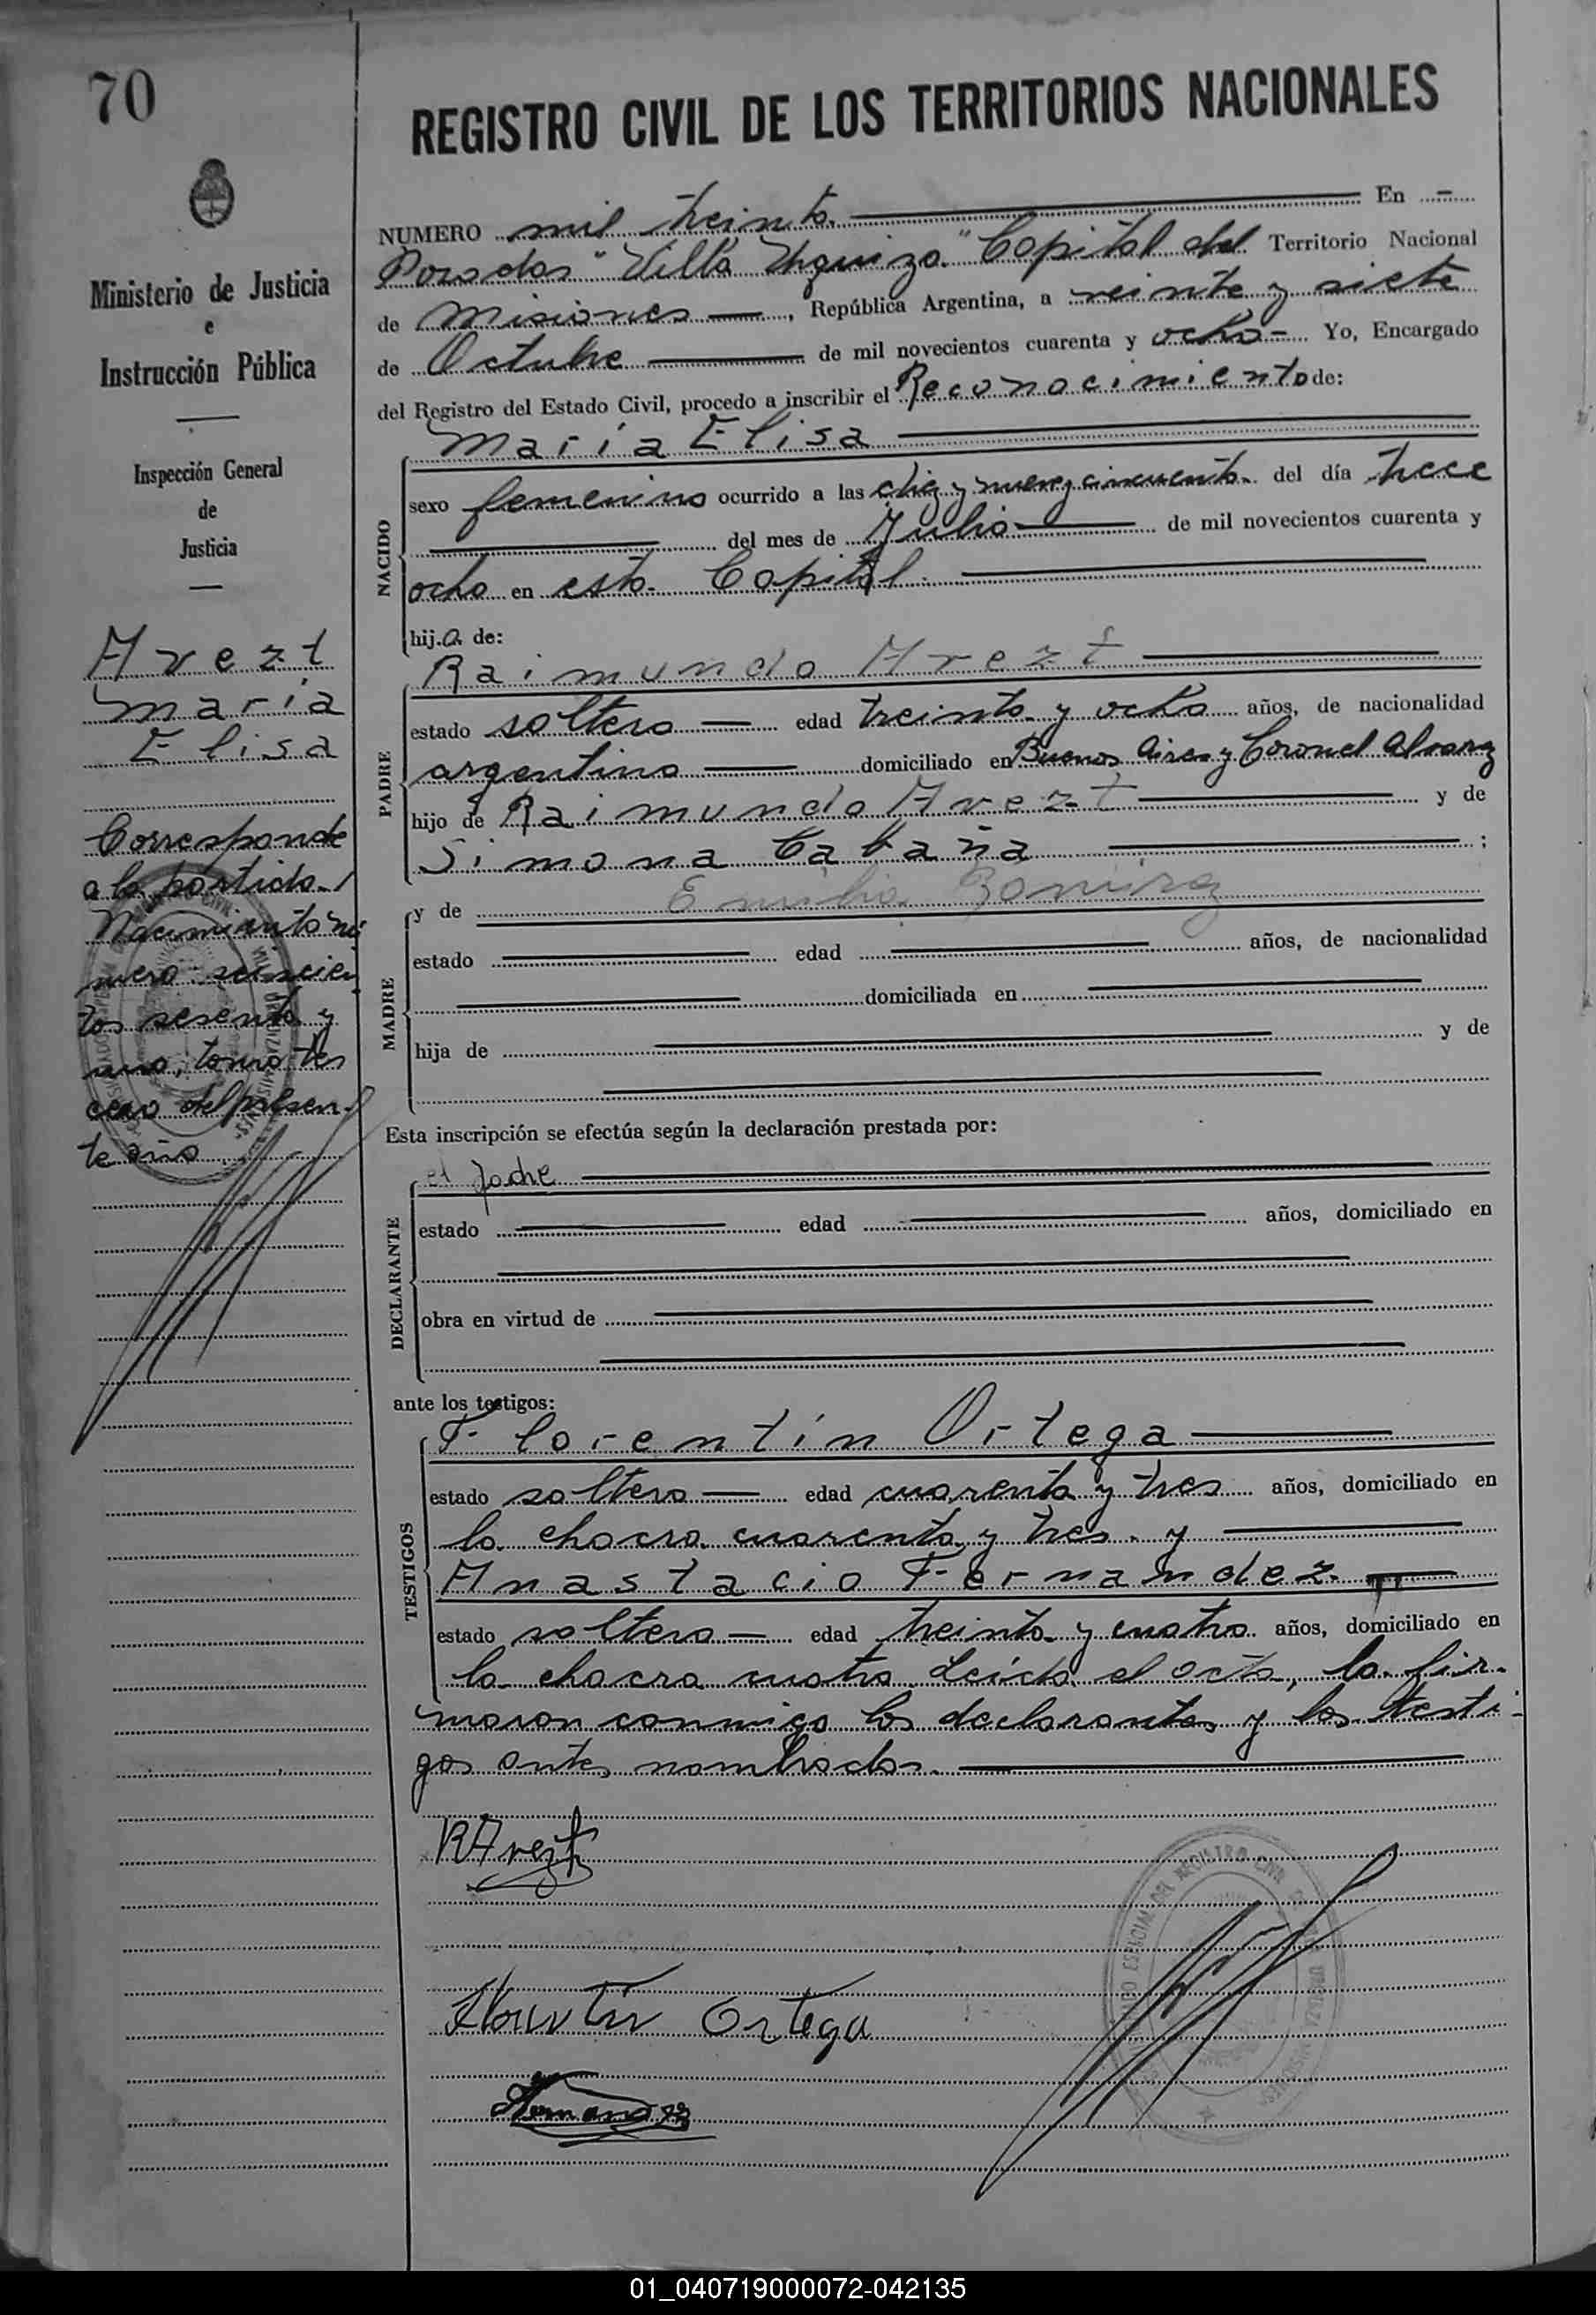 70
REGISTRO CIVIL DE LOS TERRITORIOS NACIONALES
Ministerio de Justicia
e
Instrucción Pública
Inspección General
de
Justicia
Arezt
María
Elisa
Corresponde
a la partida
Nacimiento nú
mero seiscien
tos sesenta y
uno, tomo ter
cero del presen
te año
NUMERO mil treinta En
Posadas "Villa Urquiza" Capital del Territorio Nacional
de Misiones, República Argentina, a veinte y siete
de Octubre de mil novecientos cuarenta y ocho Yo, Encargado
del Registro del Estado Civil, procedo a inscribir el Reconocimiento de:
NACIDO
María Elisa
sexo femenino ocurrido a las diez y nueve y cincuenta del día trece
del mes de Julio de mil novecientos cuarenta y
ocho en esta Capital.
hija de:
PADRE
Raimundo Arezt
estado soltero edad treinta y ocho años, de nacionalidad
argentino domiciliado en Buenos Aires y Coronel Alvarez
hijo de Raimundo Arezt y de
Simona Cabaña ;
MADRE
y de
estado edad años, de nacionalidad
domiciliada en
hija de y de
Esta inscripción se efectúa según la declaración prestada por:
DECLARANTE
el padre
estado edad años, domiciliado en
obra en virtud de
ante los testigos:
TESTIGOS
Florentín Ortega
estado soltero edad cuarenta y tres años, domiciliado en
la chacra cuarenta y tres y
Anastacio Fernandez
estado soltero edad treinta y cuatro años, domiciliado en
la chacra cuatro Leída el acta, la fir-
maron conmigo los declarantes y los testi-
gos antes nombrados.
RArezt
Florentin Ortega
Fernandez
01_040719000072-042135